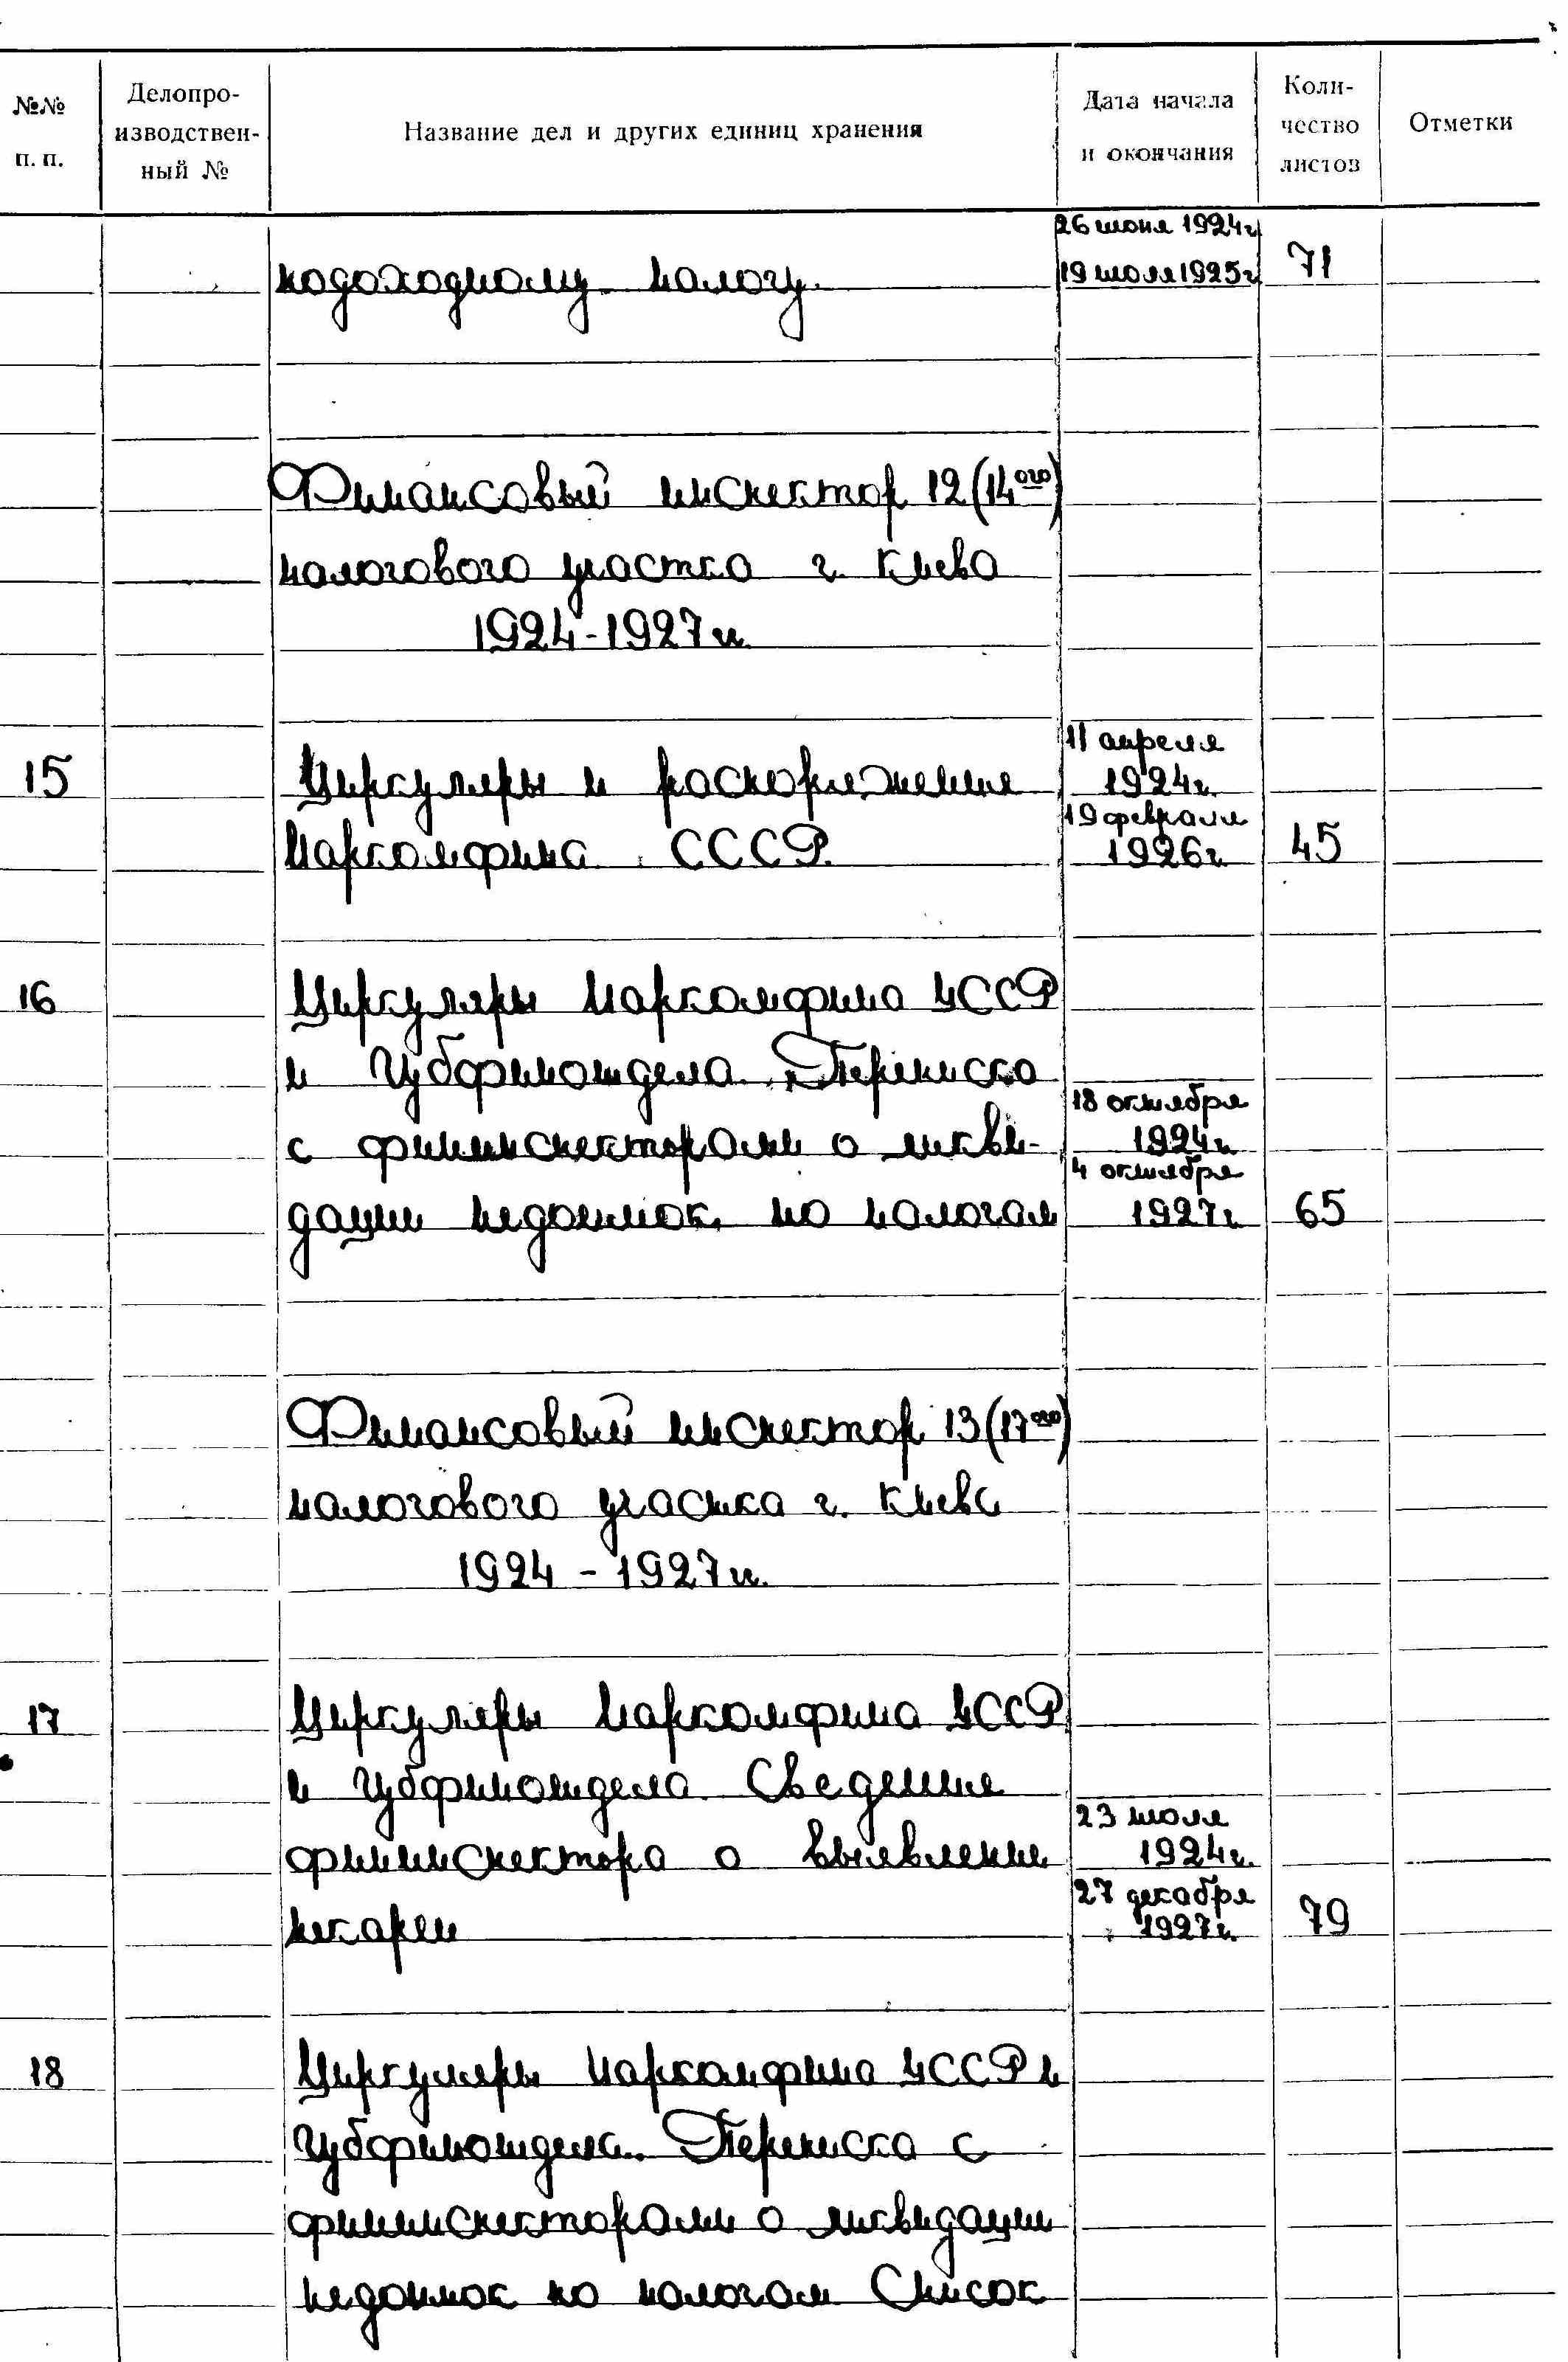 №№ п. п. Делопроизводствен-ный № Название дел и других единиц хранения Дата начала и окончания Коли-чество листов Отметки
26 июня 1924г
подоходному налогу. 19 июля 1925г 71
Финансовый инспектор 12 (14ого)
налогового участка г. Киева
1924-1927гг.
11 апреля
15 Циркуляры и распоряжения 1924г.
19 февраля
Наркомфина СССР. 1926г. 45
16 Циркуляры Наркомфина УССР
и Губфинотдела. Переписка
18 октября
с фининспекторами о ликви- 1924г.
4 октября
дации недоимок по налогам 1927г 65
Финансовый инспектор 13 (17ого)
налогового участка г. Киева
1924 - 1927гг.
17 Циркуляры Наркомфина УССР
и Губфинотдела. Сведения
23 июля
фининспектора о выявлении 1924г.
27 декабря
пекарен 1927г. 79
18 Циркуляры Наркомфина УССР и
Губфинотдела. Переписка с
фининспекторами о ликвидации
недоимок по налогам Список